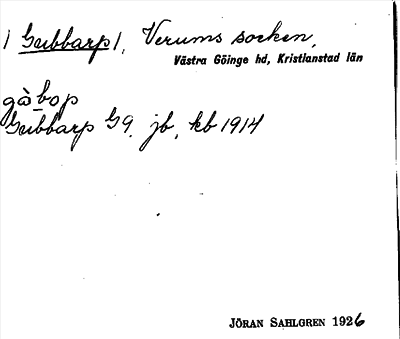 / Gubbarp /, Verums socken,
Västra Göinge hd, Kristianstad län
gàbop
Gubbarp G9. jb, kb 1914
JÖRAN SAHLGREN 1926